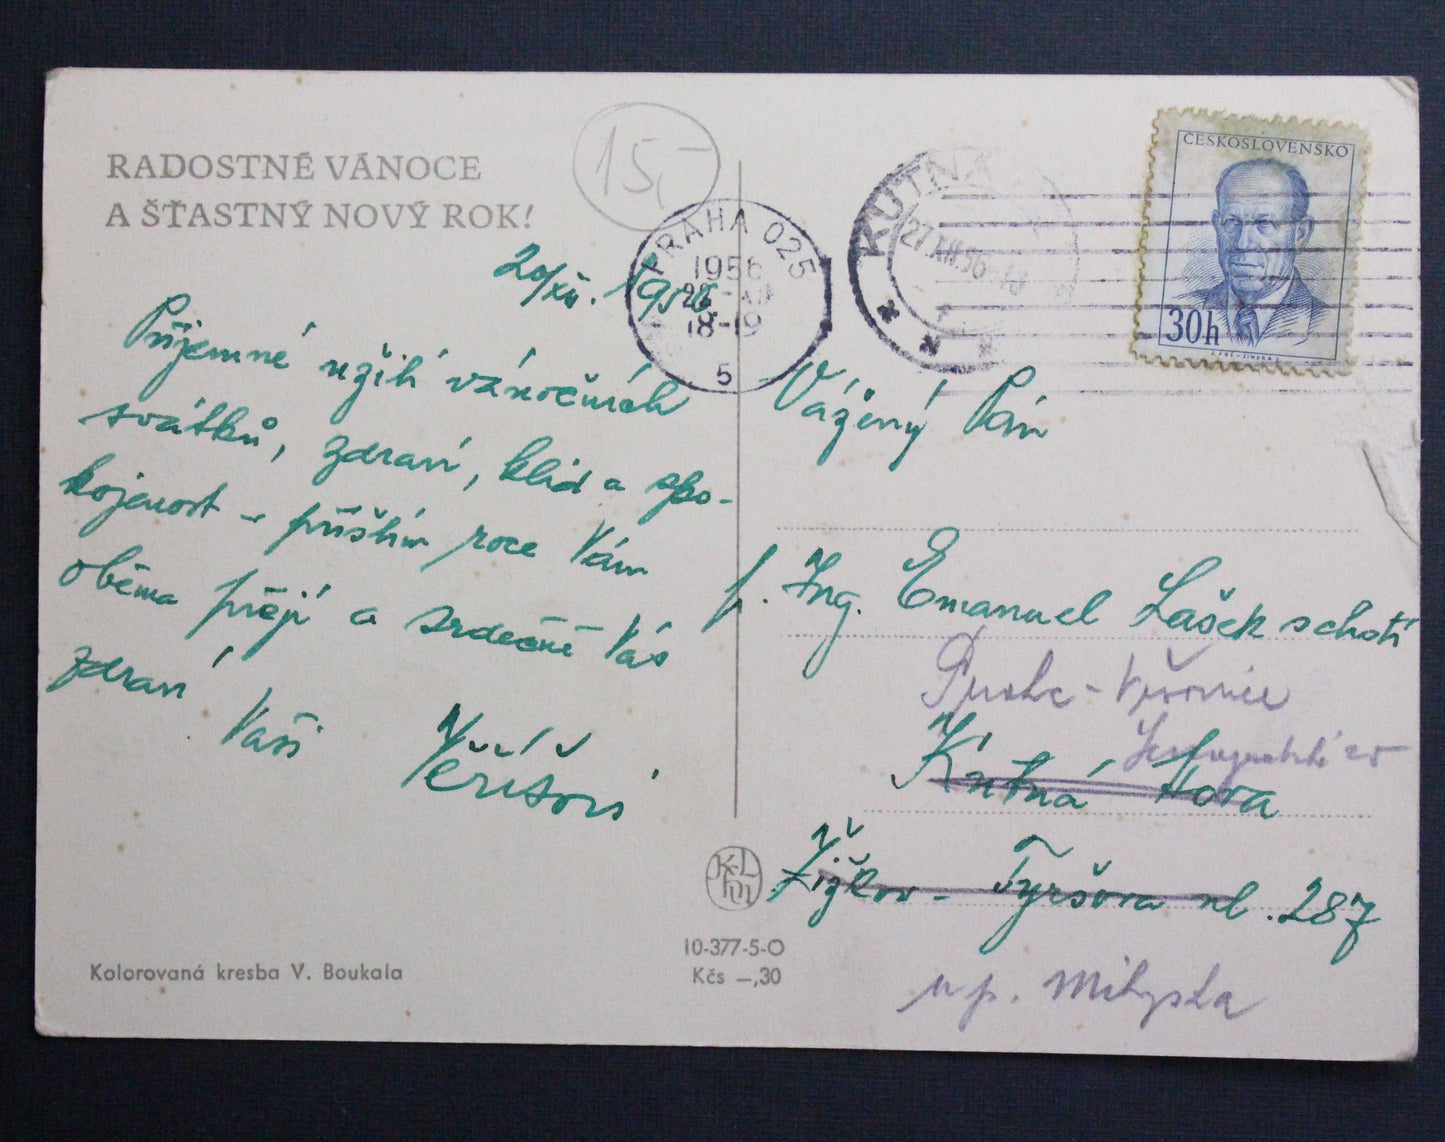 RADOSTNÉ VÁNOCE
A ŠŤASTNÝ NOVÝ ROK!
15,-
20/XII. 1956
Příjemné užití vánočních
svátků, zdraví, klid a spo-
kojenost v příštím roce Vám
oběma přejí a srdečně Vás
zdraví
Vaši
Veříšovi
PRAHA 025
1956
18-19
5
KUTNÁ
27.XII.56
ČESKOSLOVENSKO
30h
Vážený Pán
p. Ing. Emanuel Lašek s chotí
Praha - Vršovice
Kutná Hora
Žižkov - Tyršova ul. 287
u p.
10-377-5-O
Kčs –,30
Kolorovaná kresba V. Boukala